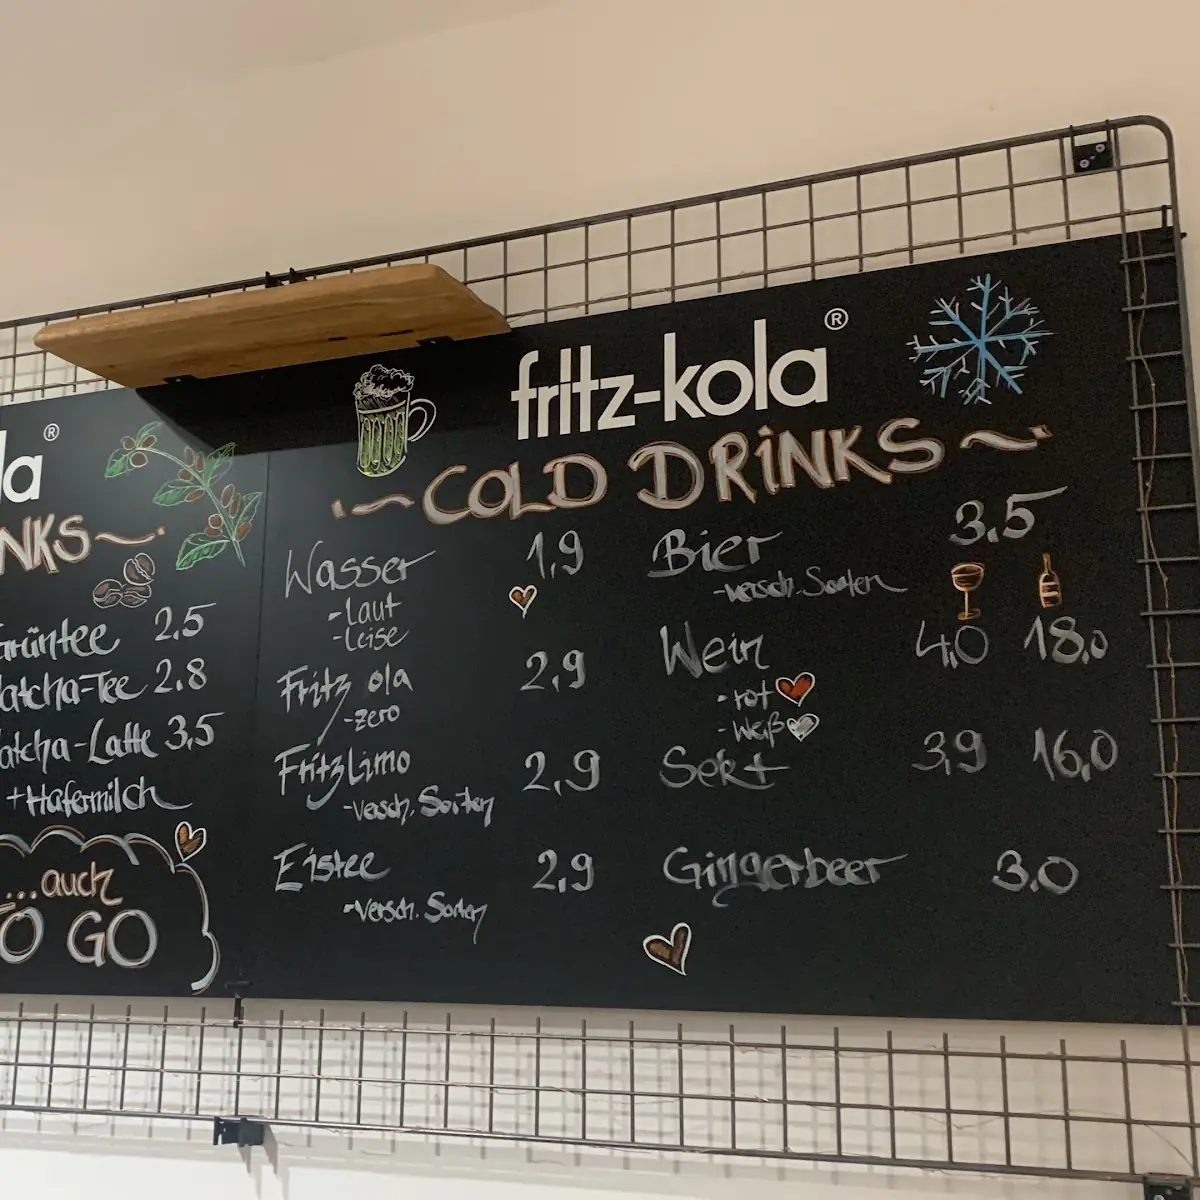 la ®
NKS~
Grüntee 2.5
Matcha-Tee 2.8
Matcha-Latte 3,5
+Hafermilch
...auch
TO GO
fritz-kola ®
~COLD DRINKS~
Wasser 1,9
-Laut
-Leise
Fritz ola 2,9
-zero
FritzLimo 2,9
-versch. Sorten
Eistee 2,9
-versch. Sorten
Bier 3,5
-versch. Sorten
Wein 4,0 18,0
-rot
-Weiß
Sekt 3,9 16,0
Gingerbeer 3.0